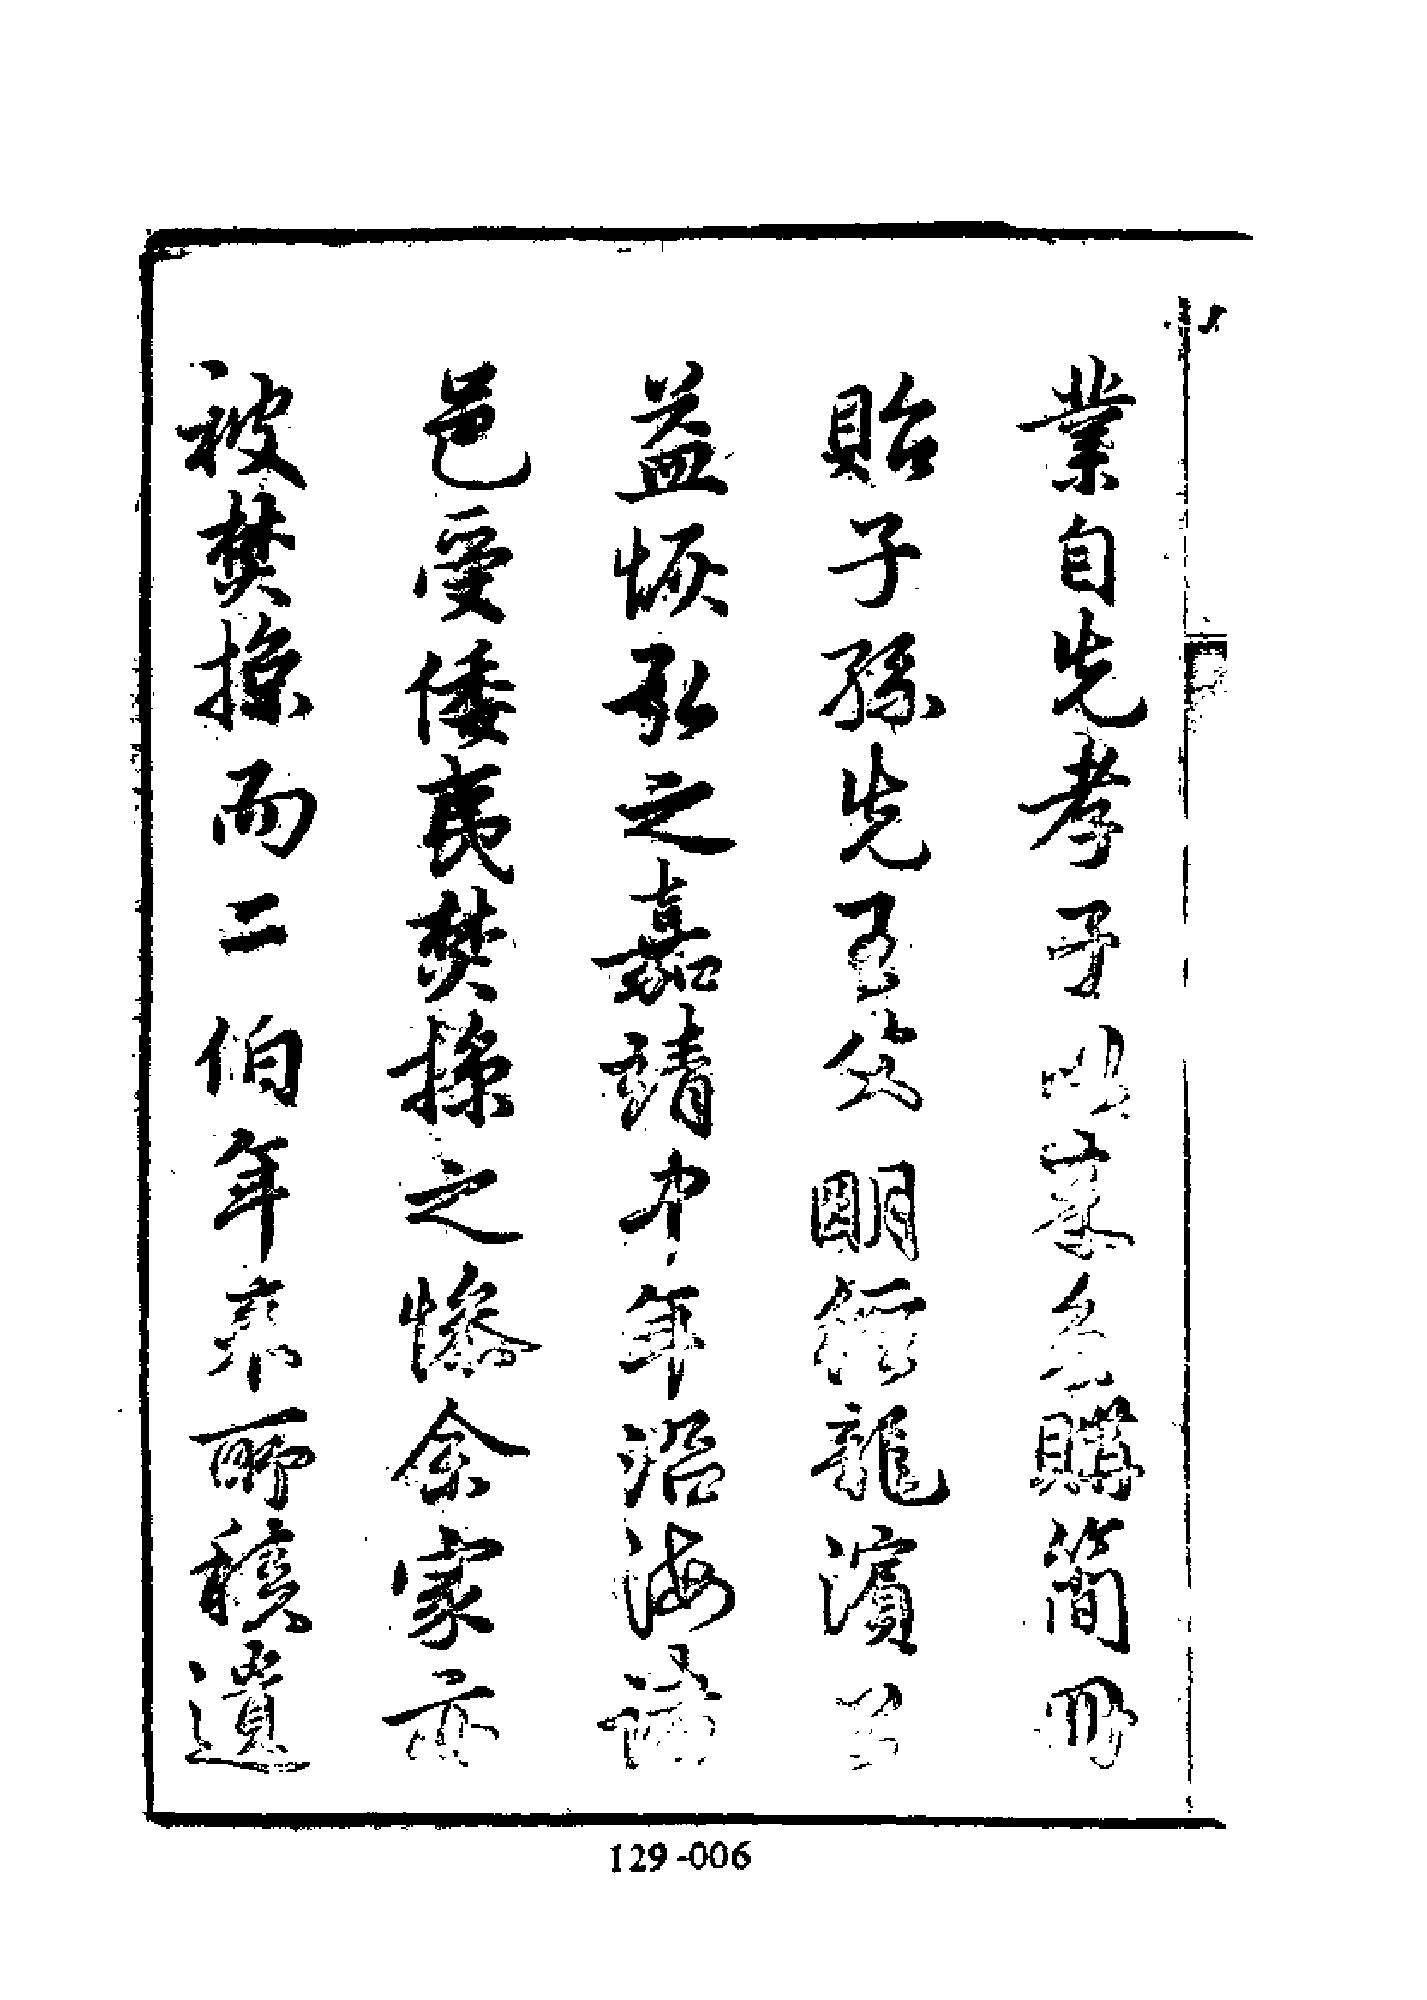 業自先孝子以來多購簡冊
貽子孫先王父明經龍濱公
益恢弘之嘉靖中年沿海諸
邑受倭夷焚掠之慘余家亦
被焚掠而二伯年來所積遺
129-006